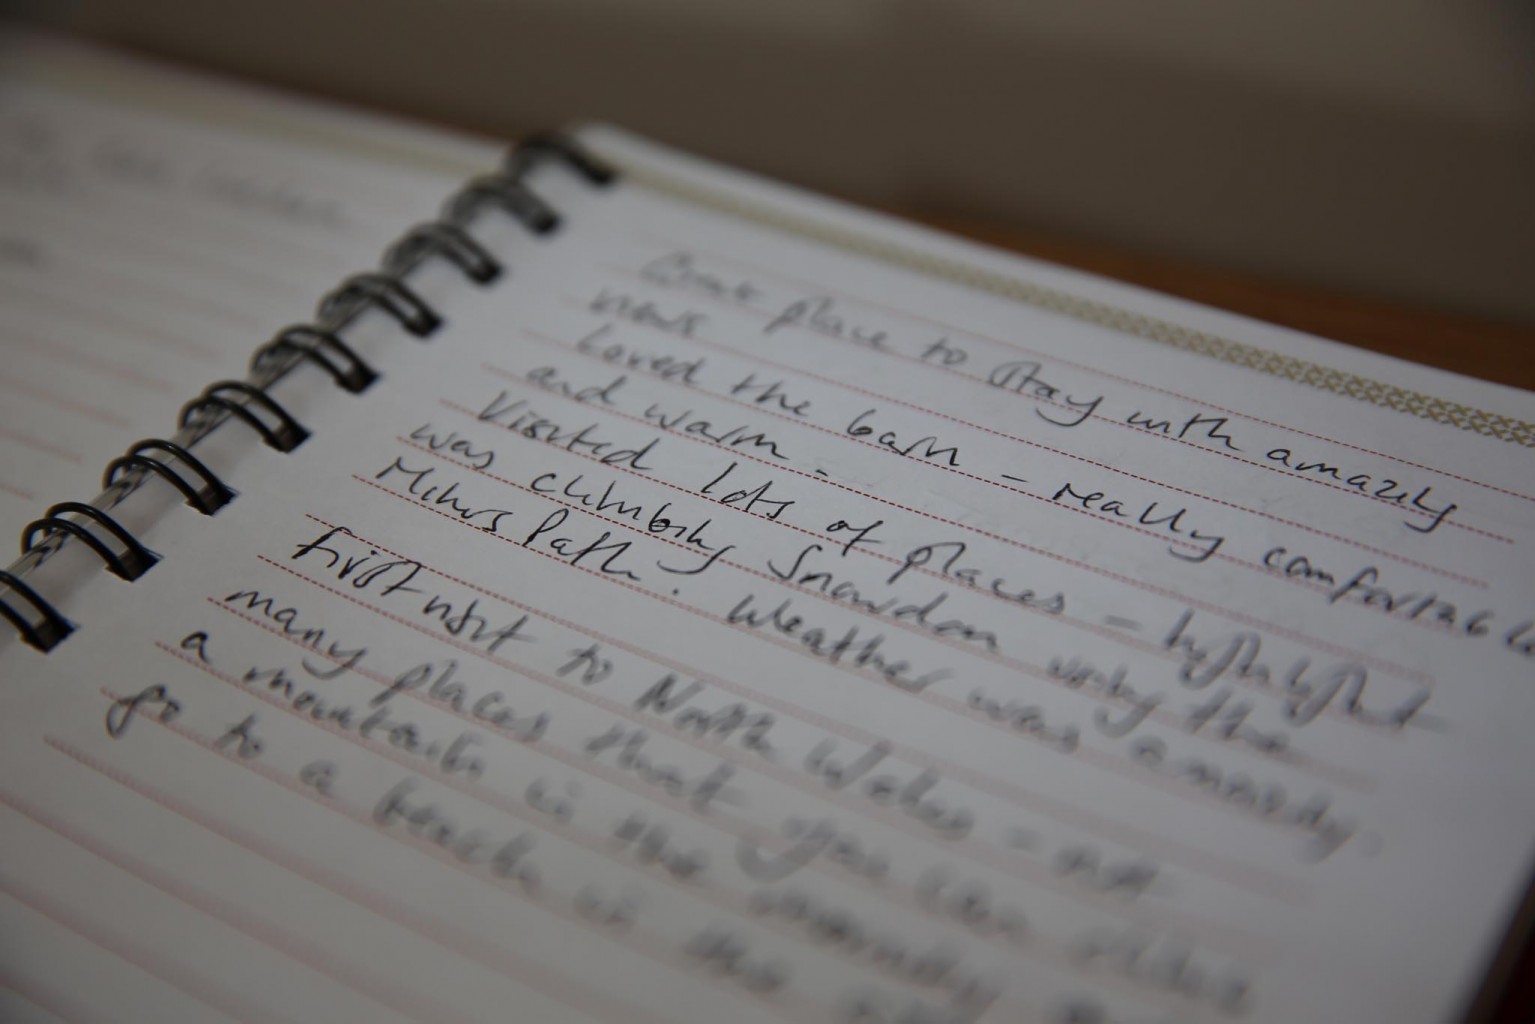 Great place to stay with amazing
views
Loved the barn - really comfortable
and warm.
Visited lots of places - highlight
was climbing Snowdon using the
Miners Path. Weather was amazing.
First visit to North Wales - not
many places that you can climb
a mountain in the morning &
go to a beach in the